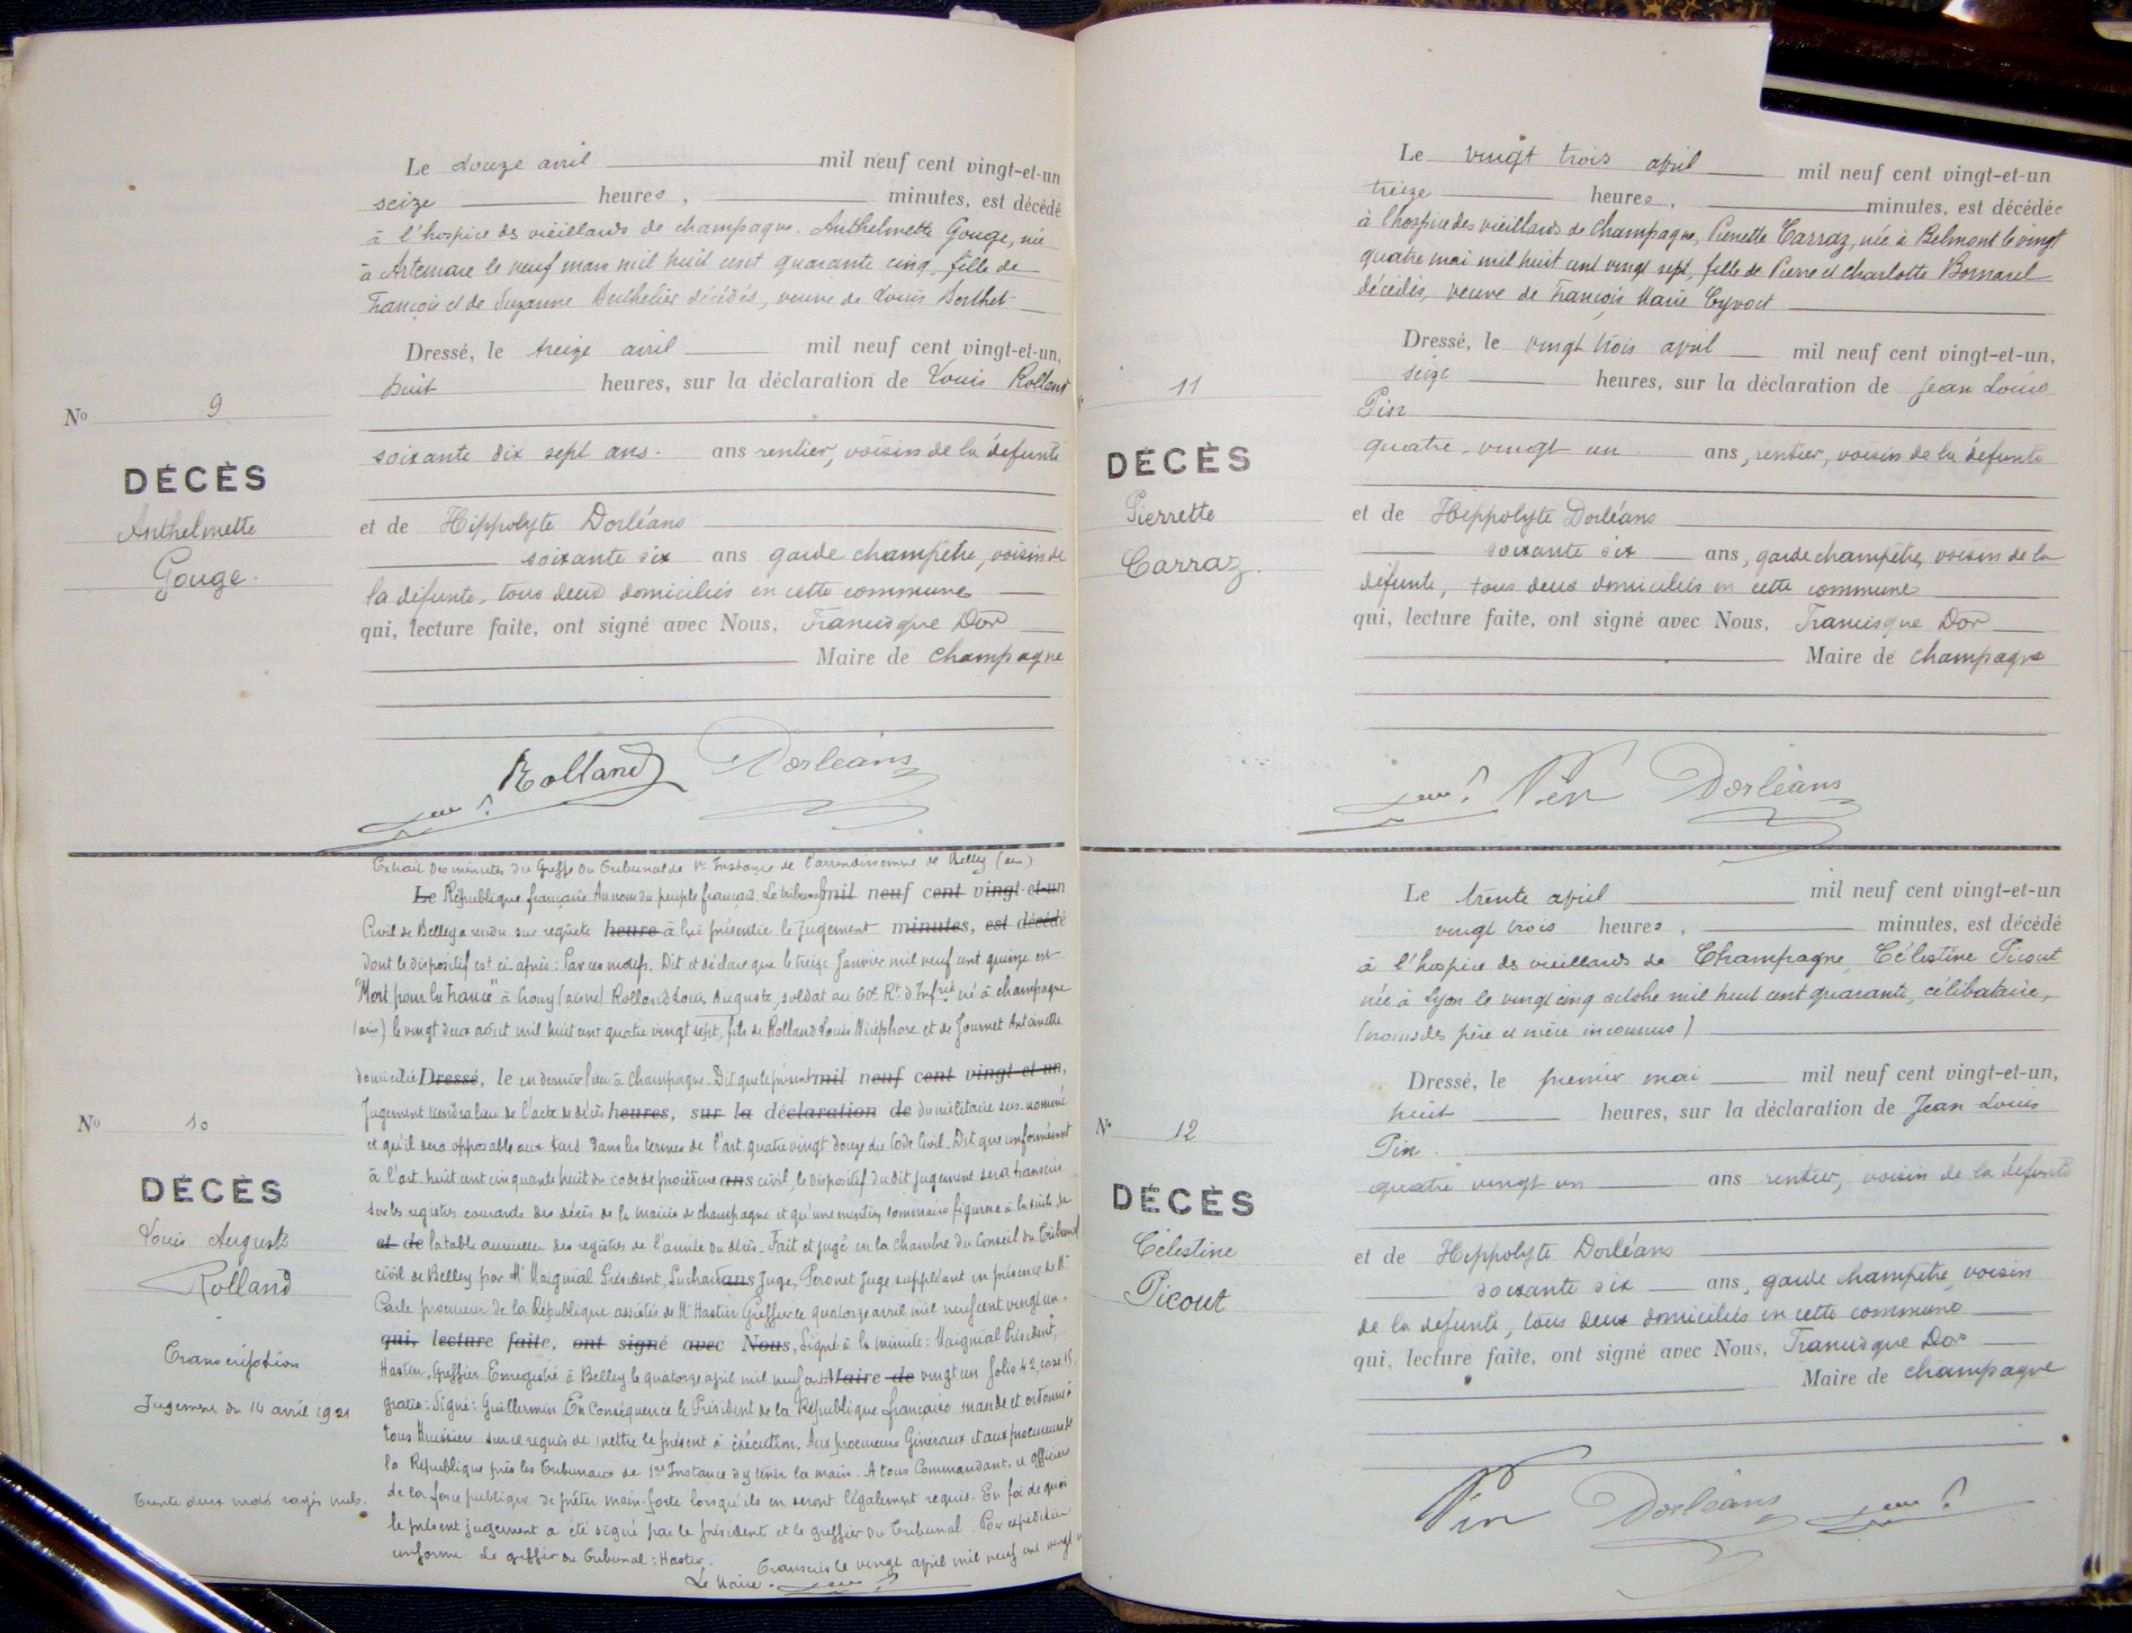 Le douze avril mil neuf cent vingt-et-un
seize heures, minutes, est décédé
à l'hospice des vieillards de champagne. Anthelmette Gouge, née
à Artemare le neuf mars mil huit cent quarante cinq, fille de
François et de Suzanne Berthelier décédés, veuve de Louis Berthet
Dressé, le treize avril mil neuf cent vingt-et-un,
huit heures, sur la déclaration de Louis Rolland
soixante dix sept ans. ans rentier, voisin de la défunte
et de Hippolyte Dorléans
soixante six ans garde champêtre, voisin de
la défunte, tous deux domiciliés en cette commune
qui, lecture faite, ont signé avec Nous, Francisque Dor
Maire de champagne
No 9
DÉCÈS
Anthelmette
Gouge.
Rolland Dorléans
Extrait des minutes du Greffe du Tribunal de 1re Instance de l'arrondissement de Belley (ain)
Le République française Au nom du peuple français. Le tribunal mil neuf cent vingt-et-un
Civil de Belley a rendu sur requête heure à lui présentée le jugement minutes, est décédé
dont le dispositif est ci-après : Par ces motifs. Dit et déclare que le treize Janvier mil neuf cent quinze est
"Mort pour la France" à Crouy (aisne) Rolland Louis Auguste, soldat au 60e Rt d'Infrie né à champagne
(ain) le vingt deux août mil huit cent quatre vingt sept, fils de Rolland Louis Nicéphore et de Journet Antoinette
domicilié Dressé, le en dernier lieu à champagne. Dit que le présent mil neuf cent vingt-et-un,
Jugement tiendra lieu de l'acte de décès heures, sur la déclaration de du militaire sus-nommé
et qu'il sera opposable aux tiers dans les termes de l'art. quatre vingt douze du Code Civil. Dit que conformément
à l'art. huit cent cinquante huit du code de procédure ans civil, le dispositif du dit jugement sera transcrit
sur les registres courants des décès de la mairie de champagne et qu'une mention sommaire figurera à la suite de
et de la table annuelle des registres de l'année du décès. Fait et jugé en la chambre du Conseil du Tribunal
civil de Belley par Mr Maignial Président, ans Juge, Peronet Juge suppléant en présence de Mr
procureur de la République assistés de Mr Hastier Greffier le quatorze avril mil neuf cent vingt un.
qui, lecture faite, ont signé avec Nous, Signé à la minute : Maignial Président,
Hastier, Greffier. Enregistré à Belley le quatorze avril mil neuf cent Maire de vingt un folio 42, case 15
gratis : Signé : Guillermin En Conséquence le Président de la République française mande et ordonne à
tous Huissiers sur ce requis de mettre le présent à exécution. Aux procureurs Généraux et aux procureurs de
la République près les Tribunaux de 1re Instance d'y tenir la main. A tous Commandants et officiers
de la force publique de prêter main-forte lorsqu'ils en seront légalement requis. En foi de quoi
le présent jugement a été signé par le président et le greffier du Tribunal. Pour expédition
conforme Le greffier du Tribunal : Hastier. Transcrit le vingt avril mil neuf cent vingt
Le Maire.
No 10
DÉCÈS
Louis Auguste
Rolland
Transcription
Jugement du 14 avril 1921
Trente deux mots rayés nuls.
Le vingt trois avril mil neuf cent vingt-et-un
treize heures, minutes, est décédée
à l'hospice des vieillards de Champagne, Pierrette Carraz, née à Belmont le vingt
quatre mai mil huit cent vingt sept, fille de Pierre et Charlotte Bornarel
décédés, veuve de François Marie Cyvoct
Dressé, le vingt trois avril mil neuf cent vingt-et-un,
seize heures, sur la déclaration de Jean Louis
Pin
quatre-vingt un ans, rentier, voisin de la défunte
et de Hippolyte Dorléans
soixante six ans, garde champêtre, voisin de la
défunte, tous deux domiciliés en cette commune
qui, lecture faite, ont signé avec Nous, Francisque Dor
Maire de champagne
11
DÉCÈS
Pierrette
Carraz.
Pin Dorléans
Le trente avril mil neuf cent vingt-et-un
vingt trois heures, minutes, est décédé
à l'hospice des vieillards de Champagne, Célestine Picout
née à Lyon le vingt cinq octobre mil huit cent quarante, célibataire,
(noms des père et mère inconnus)
Dressé, le premier mai mil neuf cent vingt-et-un,
huit heures, sur la déclaration de Jean Louis
Pin.
quatre vingt un ans rentier, voisin de la défunte
et de Hippolyte Dorléans
soixante six ans, garde champêtre, voisin
de la défunte, tous deux domiciliés en cette commune
qui, lecture faite, ont signé avec Nous, Francisque Dor
Maire de champagne
No 12
DÉCÈS
Célestine
Picout
Pin Dorléans